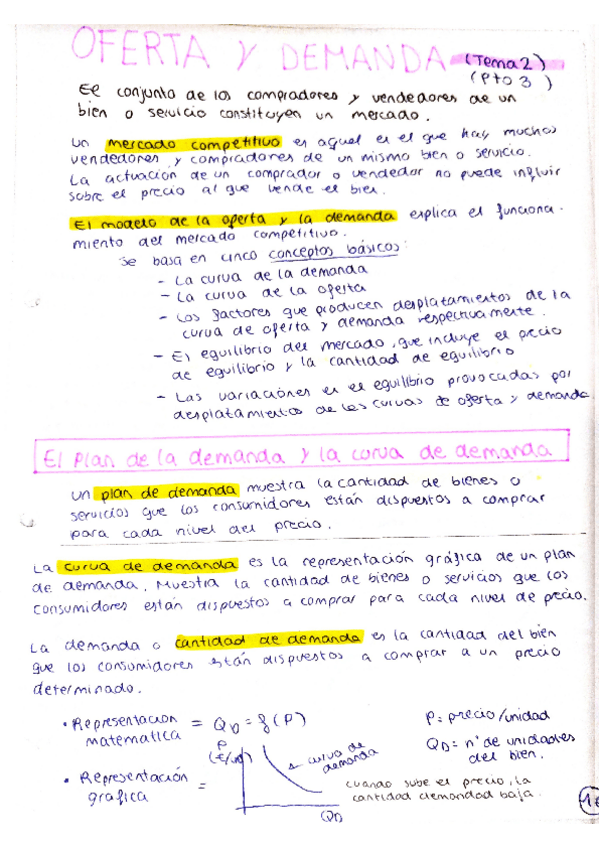 OFERTA Y DEMANDA (Tema 2)
(Pto 3)
El conjunto de los compradores y vendedores de un
bien o servicio constituyen un mercado.
Un mercado competitivo es aquel es el que hay muchos
vendedores y compradores de un mismo bien o servicio.
La actuación de un comprador o vendedor no puede influir
sobre el precio al que vende el bien.
El modelo de la oferta y la demanda explica el funciona-
miento del mercado competitivo.
Se basa en cinco conceptos básicos:
- La curva de la demanda
- La curva de la oferta
- Los factores que producen desplatamientos de la
curva de oferta y demanda respectivamente.
- El equilibrio del mercado, que incluye el precio
de equilibrio y la cantidad de equilibrio
- Las variaciones es el equilibrio provocadas por
desplatamientos de las curvas de oferta y demanda
El Plan de la demanda y la curva de demanda
Un plan de demanda muestra la cantidad de bienes o
servicios que los consumidores están dispuestos a comprar
para cada nivel del precio.
La curva de demanda es la representación gráfica de un plan
de demanda. Muestra la cantidad de bienes o servicios que los
consumidores están dispuestos a comprar para cada nivel de precio.
La demanda o cantidad de demanda es la cantidad del bien
que los consumidores están dispuestos a comprar a un precio
determinado.
• Representacion matematica = QD = f(P)
P = precio/unidad
QD = nº de unidades
del bien.
• Representación grafica =
P
(€/ud)
curva de
demanda
QD
cuando sube el precio, la
cantidad demandad baja.